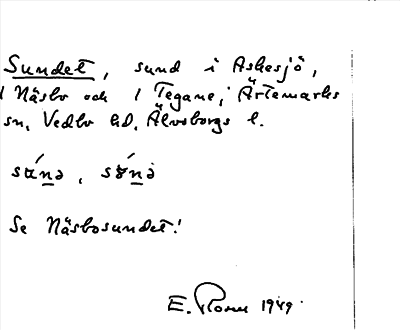 Sundet, sund i Askesjö,
1 Näsbo och 1 Tegane, i Ärtemarks
sn, Vedbo hd, Älvsborgs l.
Se Näsbosundet!
E. 1949